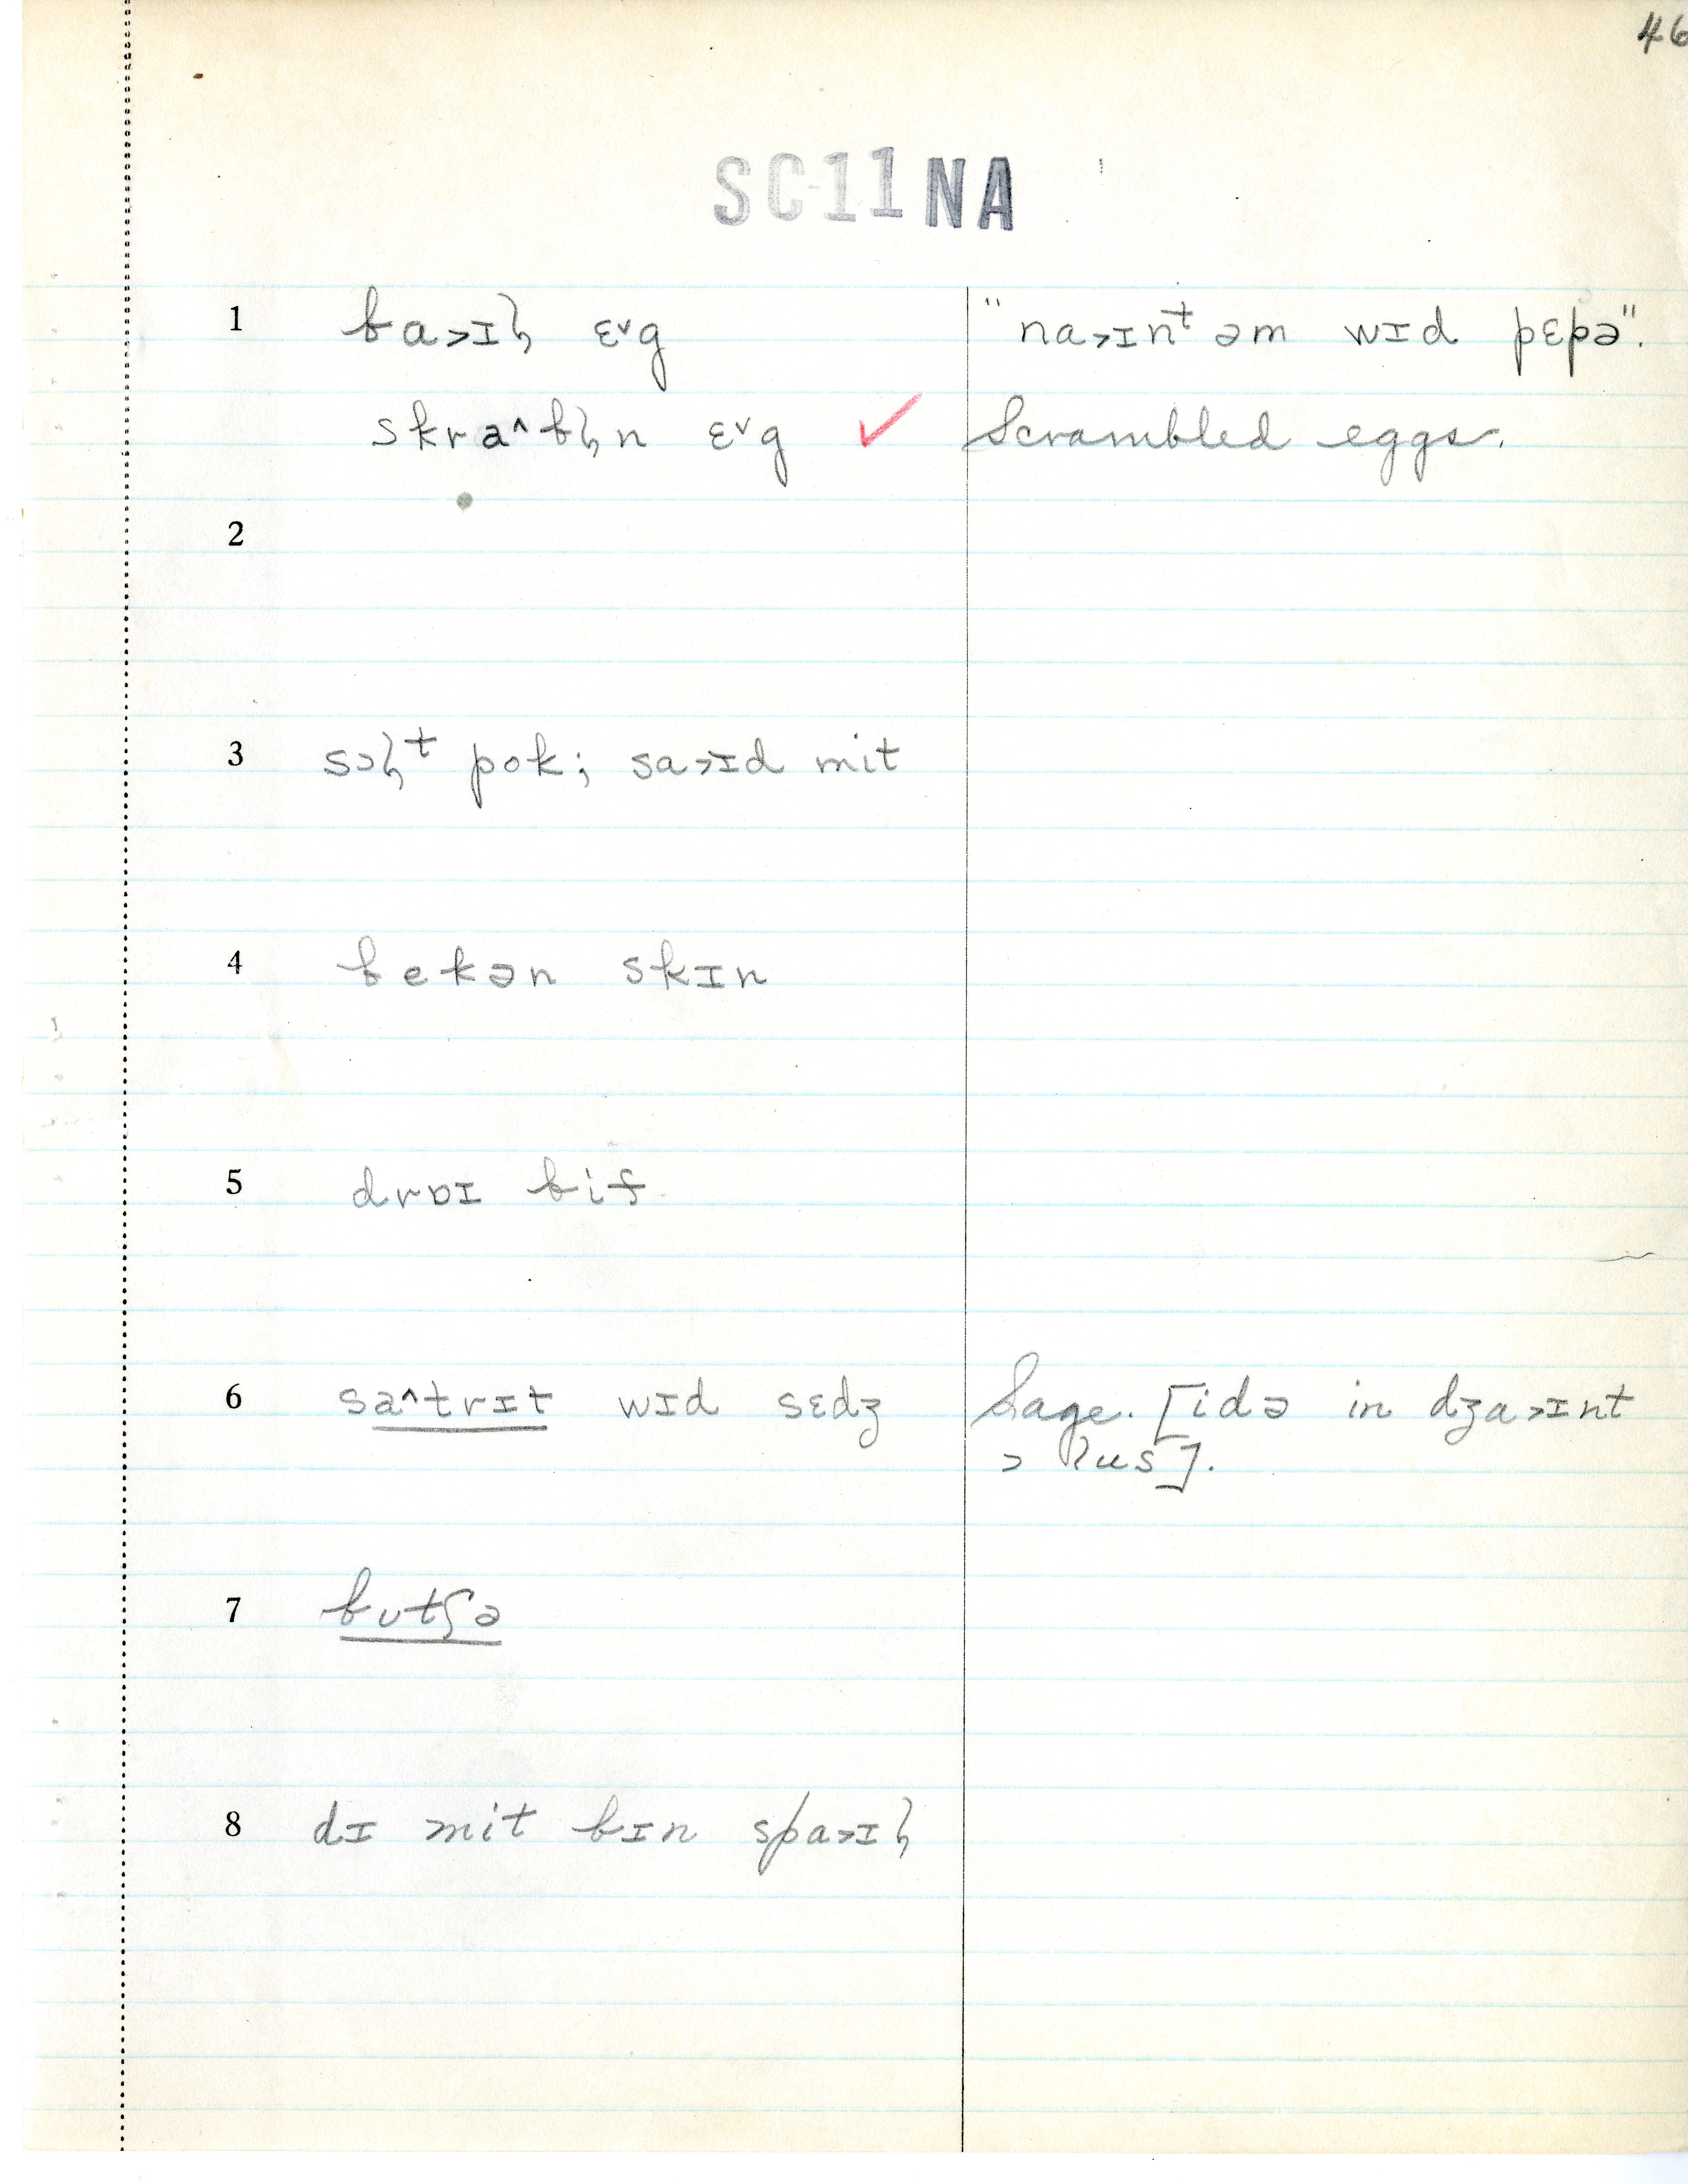 46
SC11NA
1 ba˃ɪl̩ ɛ˅g "na˃ɪnᵗ əm wɪd pɛpə".
skra^bl̩n ɛ˅g ✓ Scrambled eggs.
2
3 sɔl̩ᵗ pok; sa˃ɪd mit
4 bekən skɪn
5 drɒɪ bif
6 sa^trɪt wɪd sɛdʒ Sage. [idə in dʒa˃ɪnt
ɔ lus].
7 butʃə
8 dɪ mit bɪn spa˃ɪl̩